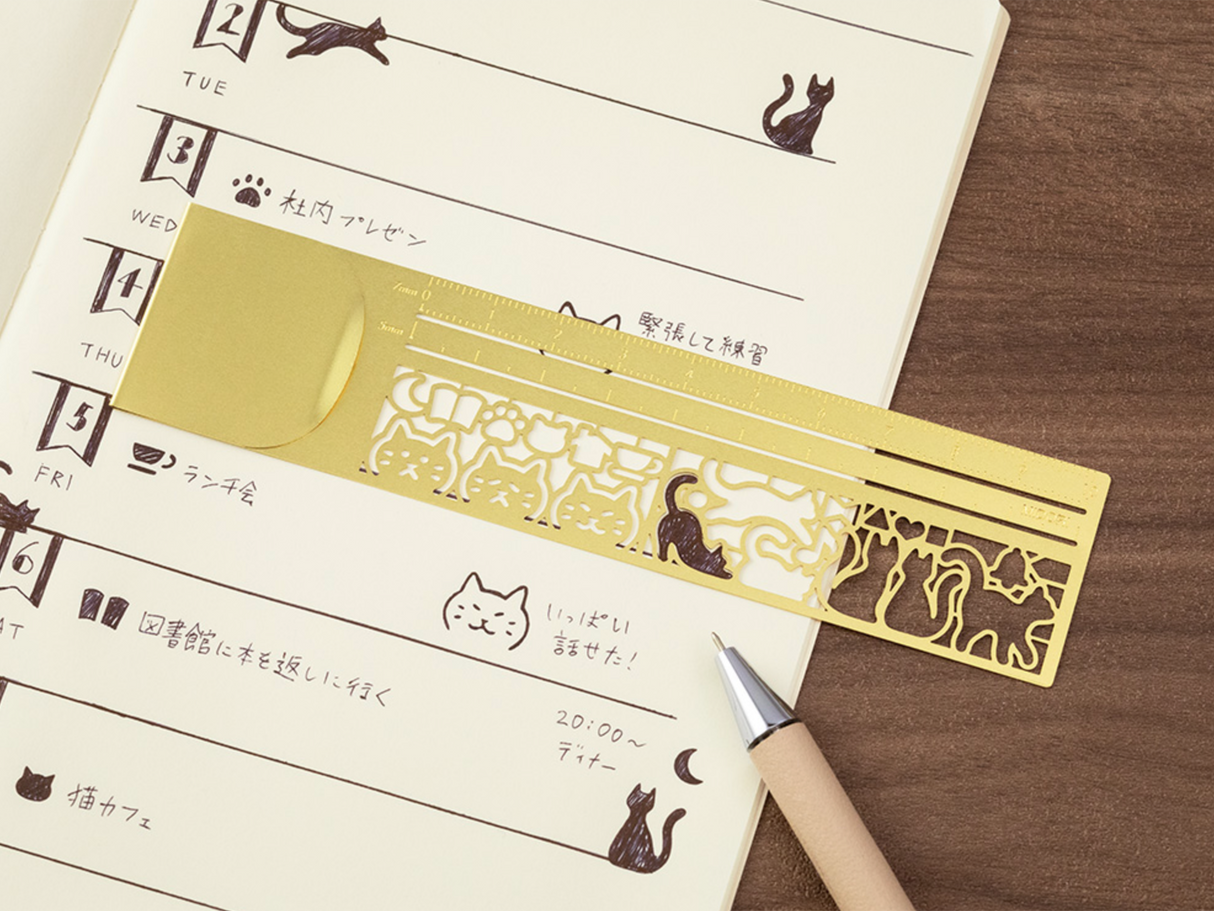 2
TUE
3
WED
社内プレゼン
4
THU
緊張して練習
7mm 0 1 2 3 4 5 6
5mm
5
FRI
ランチ会
6
いっぱい
話せた!
図書館に本を返しに行く
20:00〜
ディナー
猫カフェ